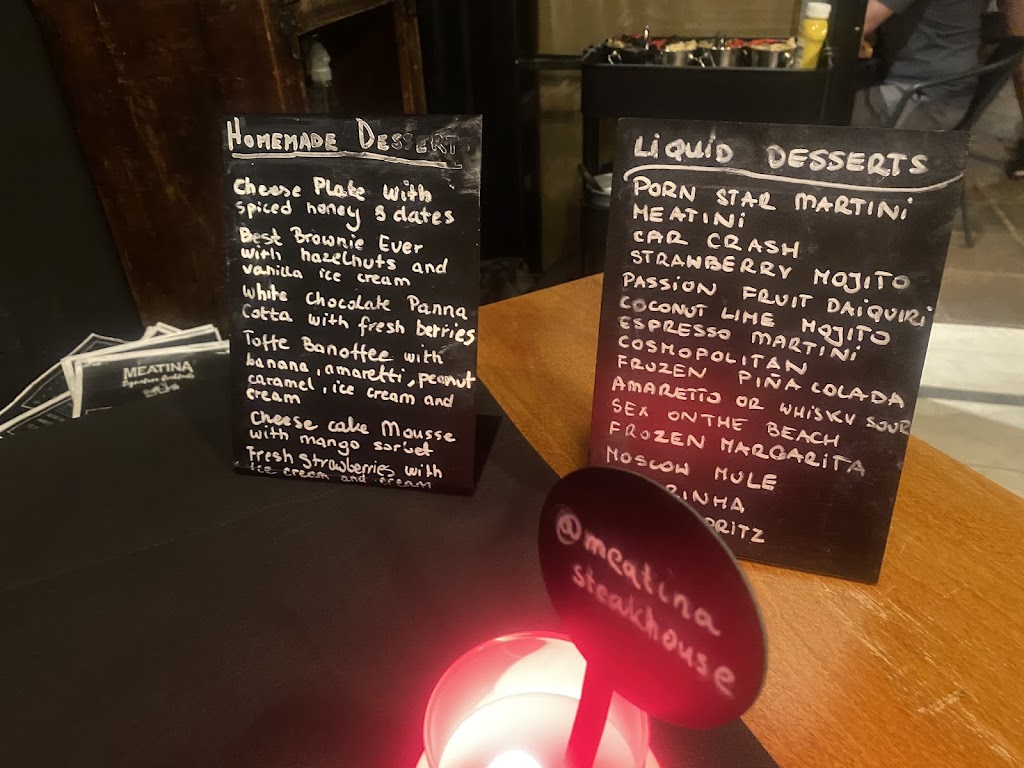 HOMEMADE DESSERT
Cheese Plate with
spiced honey & dates
Best Brownie Ever
with hazelnuts and
vanilla ice cream
White Chocolate Panna
Cotta with fresh berries
Toffe Banoffee with
banana, amaretti, peanut
caramel, ice cream and
cream
Cheese cake Mousse
with mango sorbet
Fresh Strawberries with
ice cream and cream
LIQUID DESSERTS
PORN STAR MARTINI
MEATINI
CAR CRASH
STRAWBERRY MOJITO
PASSION FRUIT DAIQUIRI
COCONUT LIME MOJITO
ESPRESSO MARTINI
COSMOPOLITAN
FROZEN PIÑA COLADA
AMARETTO OR WHISKY SOUR
SEX ON THE BEACH
FROZEN MARGARITA
MOSCOW MULE
RINHA
PRITZ
MEATINA
Signature Cocktails
@meatina
steakhouse